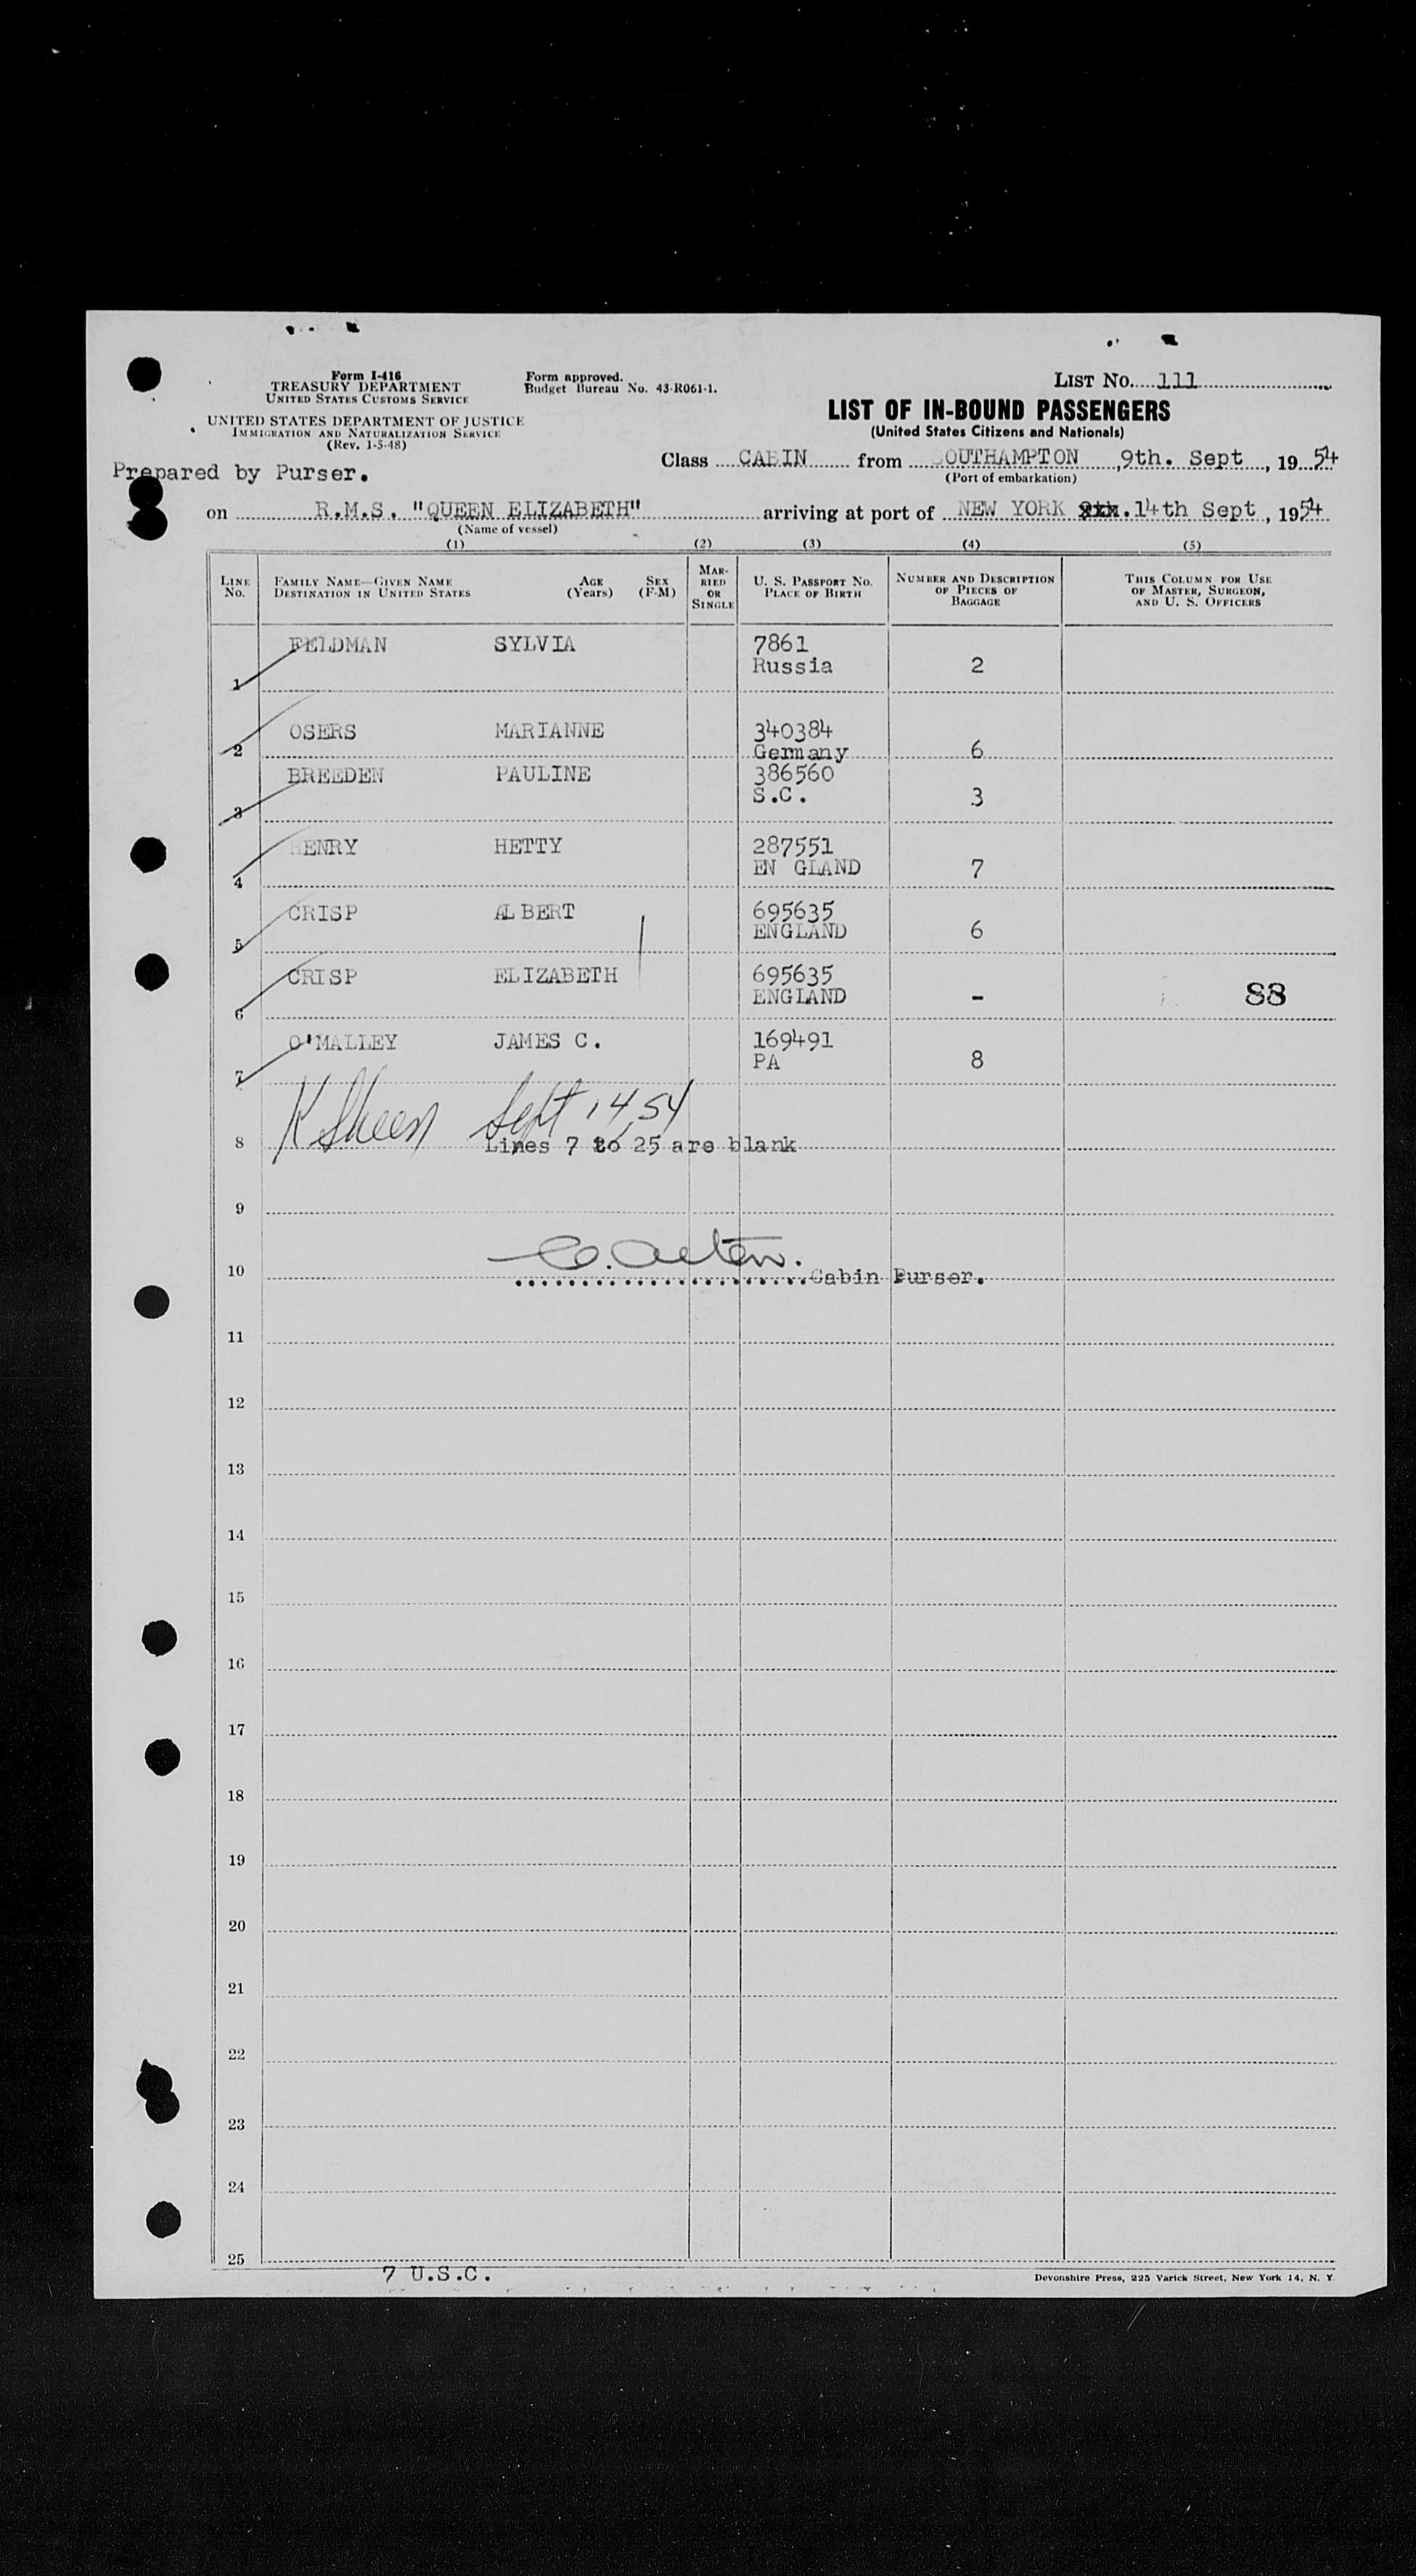 Form I-416
TREASURY DEPARTMENT
UNITED STATES CUSTOMS SERVICE
UNITED STATES DEPARTMENT OF JUSTICE
IMMIGRATION AND NATURALIZATION SERVICE
(Rev. 1-5-48)
Form approved.
Budget Bureau No. 43-R061-1.
LIST NO. 111
LIST OF IN-BOUND PASSENGERS
(United States Citizens and Nationals)
Prepared by Purser.
Class CABIN from SOUTHAMPTON, 9th. Sept, 19 54
(Port of embarkation)
on R.M.S. "QUEEN ELIZABETH" arriving at port of NEW YORK 14th Sept, 1954
(Name of vessel)
(1) (2) (3) (4) (5)
LINE NO. FAMILY NAME—GIVEN NAME DESTINATION IN UNITED STATES AGE (Years) SEX (F-M) MARRIED OR SINGLE U. S. PASSPORT NO. PLACE OF BIRTH NUMBER AND DESCRIPTION OF PIECES OF BAGGAGE THIS COLUMN FOR USE OF MASTER, SURGEON, AND U. S. OFFICERS
FELDMAN SYLVIA 7861
1 Russia 2
OSERS MARIANNE 340384
2 Germany 6
BREEDEN PAULINE 386560
3 S.C. 3
HENRY HETTY 287551
4 EN GLAND 7
CRISP ALBERT 695635
5 ENGLAND 6
CRISP ELIZABETH 695635
6 ENGLAND - 88
O'MALLEY JAMES C. 169491
7 PA 8
K Sheen Sept 14, 54
8 Lines 7 to 25 are blank
9
10 Cabin Purser.
11
12
13
14
15
16
17
18
19
20
21
22
23
24
25
7 U.S.C.
Devonshire Press, 225 Varick Street, New York 14, N. Y.